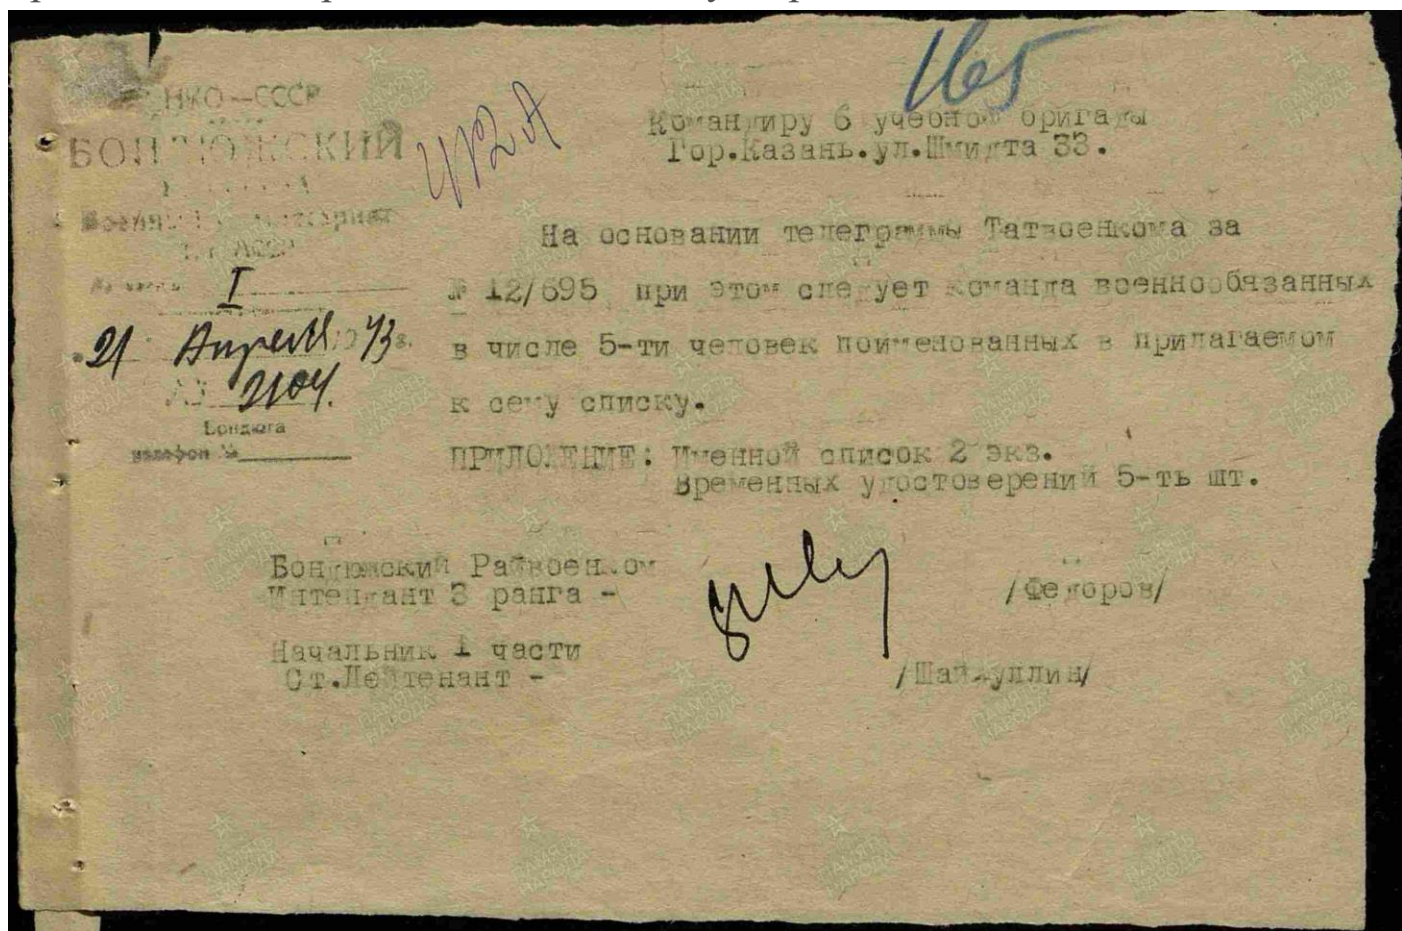 165
НКО—СССР
БОНДЮЖСКИЙ
Военный Комиссариат
АССР
I
21 Апреля 43 г.
№ 2104.
Бондюга
телефон №
Командиру 6 учебной бригады
Гор.Казань.ул.Шмидта 33.
На основании телеграммы Татвоенкома за
№ 12/695 при этом следует команда военнообязанных
в числе 5-ти человек поименованных в прилагаемом
к сему списку.
ПРИЛОЖЕНИЕ: Именной список 2 экз.
Временных удостоверений 5-ть шт.
Бондюжский Райвоенком
Интендант 3 ранга - /Федоров/
Начальник 1 части
Ст.Лейтенант - /Шайхуллин/
ПАМЯТЬ НАРОДА